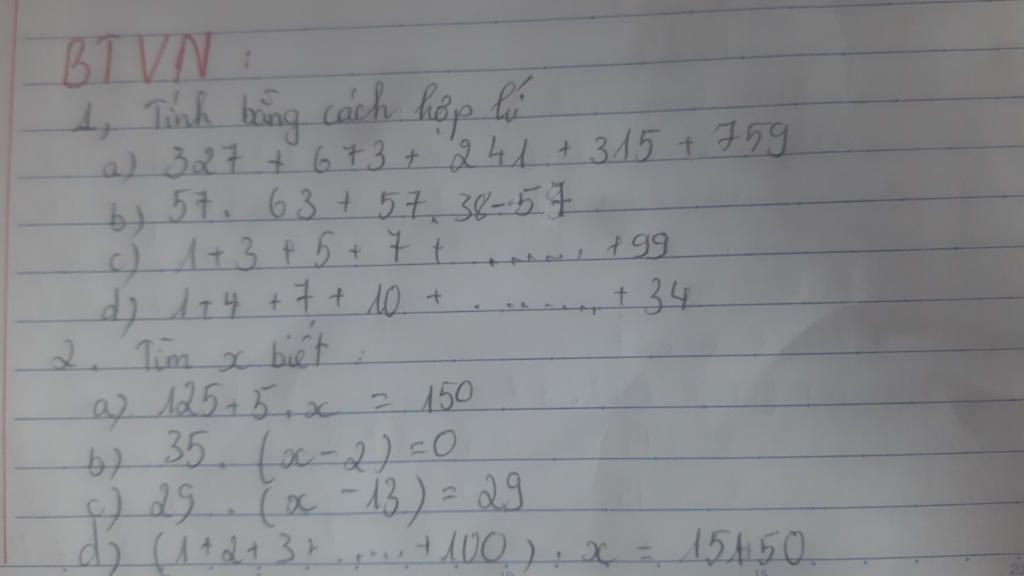 BTVN :
1, Tính bằng cách hợp lí
a) 327 + 673 + 241 + 315 + 759
b) 57. 63 + 57. 38 - 57
c) 1 + 3 + 5 + 7 + ....... + 99
d) 1 + 4 + 7 + 10 + ........ + 34
2. Tìm x biết :
a) 125 + 5 . x = 150
b) 35 . (x - 2) = 0
c) 29 . (x - 13) = 29
d) (1 + 2 + 3 + ..... + 100) . x = 15150